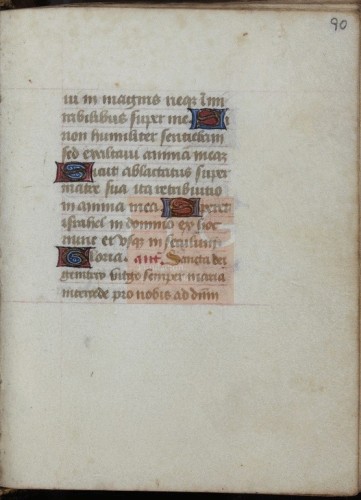 90
ui in magnis neqz in mi
rabilibus super me Si
non humiliter sentiebam
sed exaltaui animā meaz
Sicut ablactatus super
matre sua ita retributio
in anima mea Speret
israhel in domino ex hoc
nunc et vsqz in seculum
Gloria. ant. Sancta dei
genitrix virgo semper maria
intercede pro nobis ad dnm